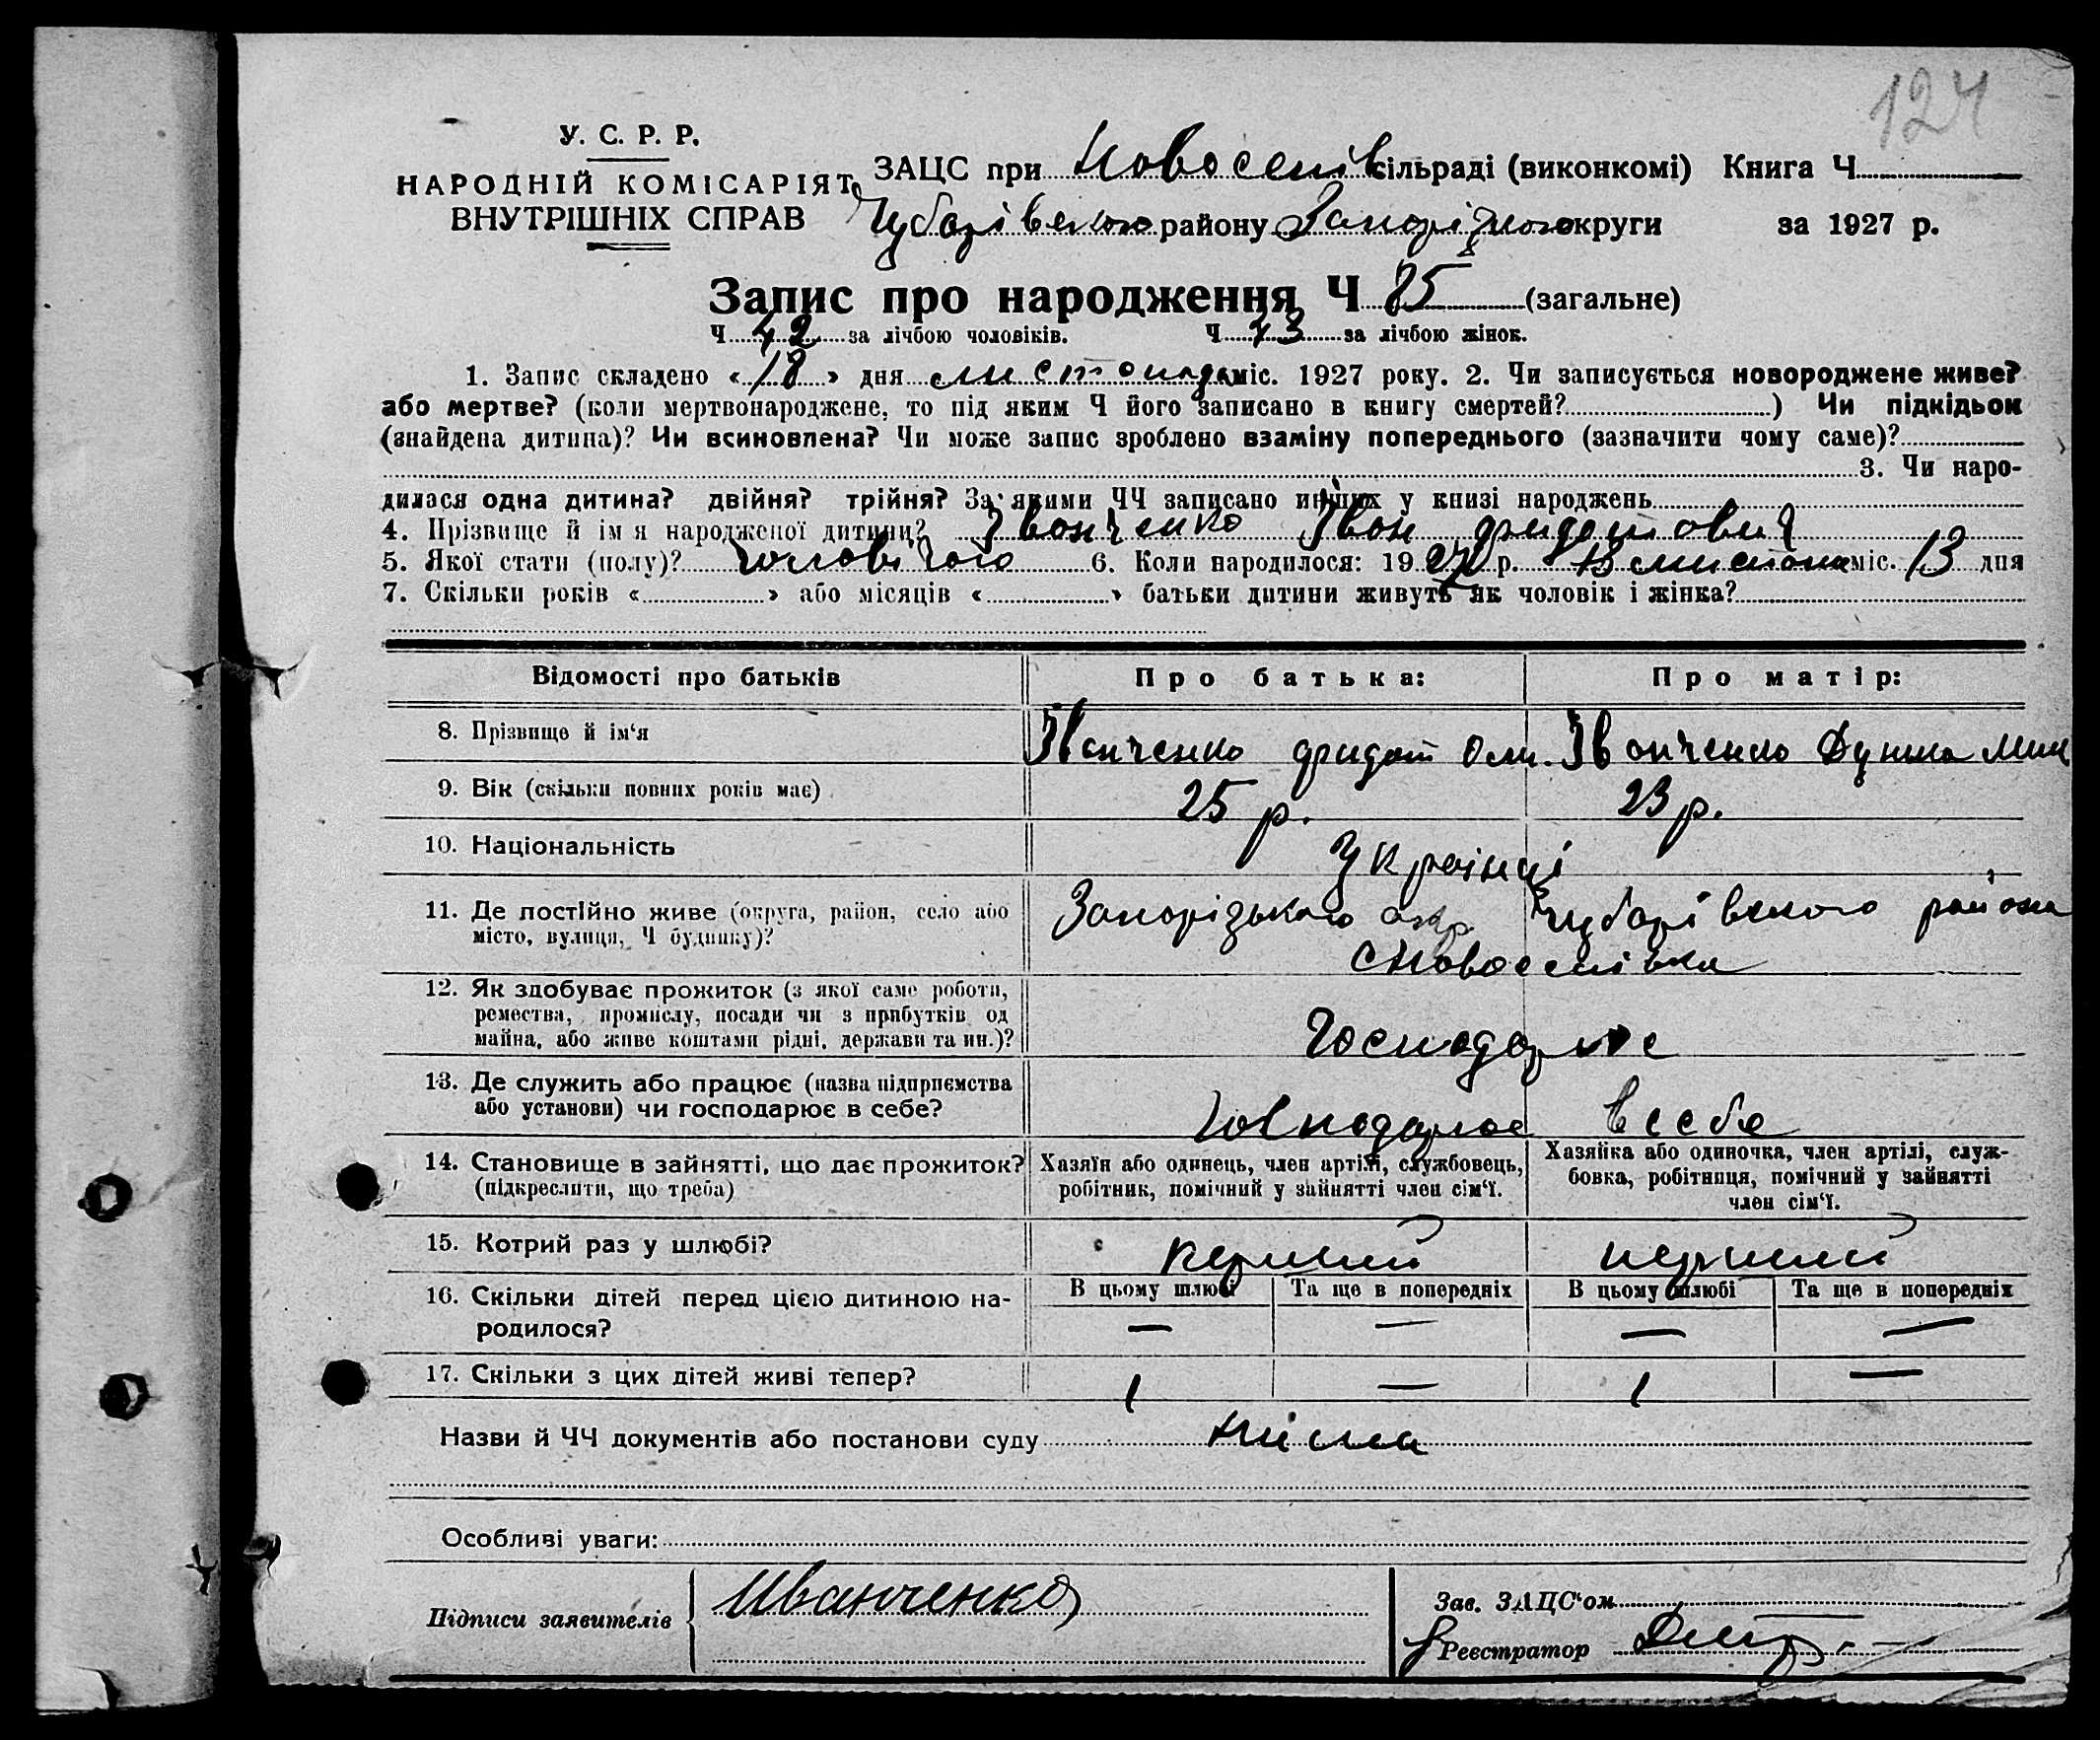 124
У. С. Р. Р.
НАРОДНІЙ КОМІСАРІЯТ
ВНУТРІШНІХ СПРАВ
ЗАЦС при Новоселів сільраді (виконкомі) Книга Ч
Чубарівського району Запорізького округи за 1927 р.
Запис про народження Ч 85 (загальне)
Ч 42 за лічбою чоловіків. Ч 43 за лічбою жінок.
1. Запис складено «18» дня листопада міс. 1927 року. 2. Чи записується новороджене живе?
або мертве? (коли мертвонароджене, то під яким Ч його записано в книгу смертей?) Чи підкідьок
(знайдена дитина)? Чи всиновлена? Чи може запис зроблено взаміну попереднього (зазначити чому саме)?
3. Чи наро-
дилася одна дитина? двійня? трійня? За якими ЧЧ записано инших у книзі народжень
4. Прізвище й ім я народженої дитини? Іванченко Іван
5. Якої стати (полу)? чоловічого 6. Коли народилося: 1927 р. листопа міс. 13 дня
7. Скільки років «» або місяців «» батьки дитини живуть як чоловік і жінка?
Відомості про батьків Про батька: Про матір:
8. Прізвище й ім‘я Іванченко Іванченко
9. Вік (скільки повних років має) 25 р. 23 р.
10. Національність Українці
11. Де постійно живе (округа, район, село або Запорізького окр Чубарівського района
місто, вулиця, Ч будинку)? Новоселівка
12. Як здобуває прожиток (з якої саме роботи,
ремества, промислу, посади чи з прибутків од
майна, або живе коштами рідні, держави та ин.)? Господарює
13. Де служить або працює (назва підприємства
або установи) чи господарює в себе? Господарює в себе
14. Становище в зайнятті, що дає прожиток? Хазяїн або одинець, член артілі, службовець, Хазяйка або одиночка, член артілі, служ-
(підкреслити, що треба) робітник, помічний у зайнятті член сім‘ї. бовка, робітниця, помічний у зайнятті
член сім‘ї.
15. Котрий раз у шлюбі? перший перший
16. Скільки дітей перед цією дитиною на- В цьому шлюбі Та ще в попередніх В цьому шлюбі Та ще в попередніх
родилося? — — — —
17. Скільки з цих дітей живі тепер? 1 — 1 —
Назви й ЧЧ документів або постанови суду Нима
Особливі уваги:
Підписи заявителів Иванченко
Зав. ЗАЦС‘ом
Реєстратор